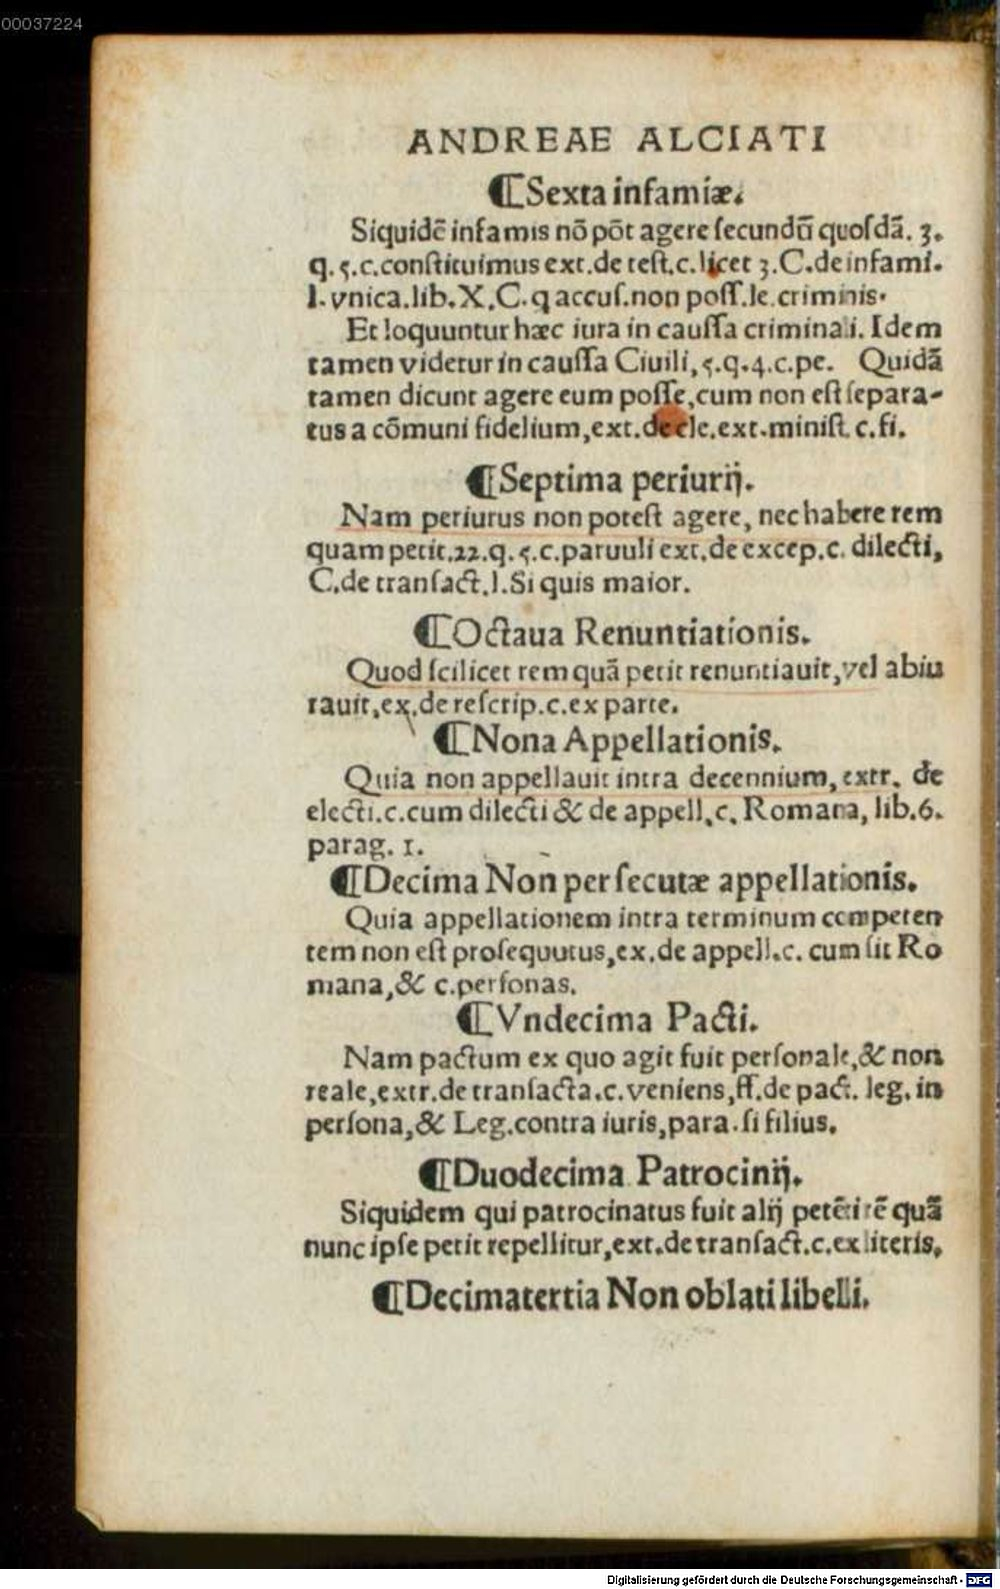 00037224
ANDREAE ALCIATI
¶Sexta infamiæ.
Siquidē infamis nō pōt agere ſecundū quoſdā. 3.
q. 5.c.conſtituimus ext.de teſt.c.licet 3.C.de infami.
l. vnica.lib.X.C.q accuſ.non poſſ.le criminis.
Et loquuntur hæc iura in cauſſa criminali. Idem
tamen videtur in cauſſa Ciuili, 5.q.4.c.pe. Quidā
tamen dicunt agere eum poſſe,cum non eſt ſepara-
tus a cōmuni fidelium,ext.de cle.ext.miniſt.c.fi.
¶Septima periurij.
Nam periurus non poteſt agere, nec habere rem
quam petit.22.q.5.c.paruuli ext.de excep.c. dilecti,
C.de tranſact.l.Si quis maior.
¶Octaua Renuntiationis.
Quod ſcilicet rem quā petit renuntiauit,vel abiu
rauit,ex.de reſcrip.c.ex parte.
¶Nona Appellationis.
Quia non appellauit intra decennium, extr. de
electi.c.cum dilecti & de appell.c. Romana, lib.6.
parag. 1.
¶Decima Non perſecutæ appellationis.
Quia appellationem intra terminum competen
tem non eſt proſequutus,ex.de appell.c. cum ſit Ro
mana,& c.perſonas.
¶Vndecima Pacti.
Nam pactum ex quo agit fuit perſonale,& non
reale,extr.de tranſacta.c.veniens,ff.de pact. leg. in
perſona,& Leg.contra iuris,para.ſi filius.
¶Duodecima Patrocinij.
Siquidem qui patrocinatus fuit alij petēti rē quā
nunc ipſe petit repellitur,ext.de tranſact.c.ex literis.
¶Decimatertia Non oblati libelli.
Digitalisierung gefördert durch die Deutsche Forschungsgemeinschaft - DFG